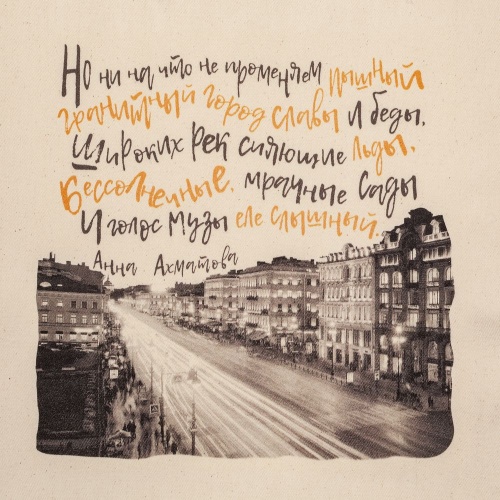 Но ни на что не променяем пышный
гранитный город славы и беды,
Широких рек сияющие льды,
Бессолнечные, мрачные сады
И голос Музы еле слышный...
Анна Ахматова